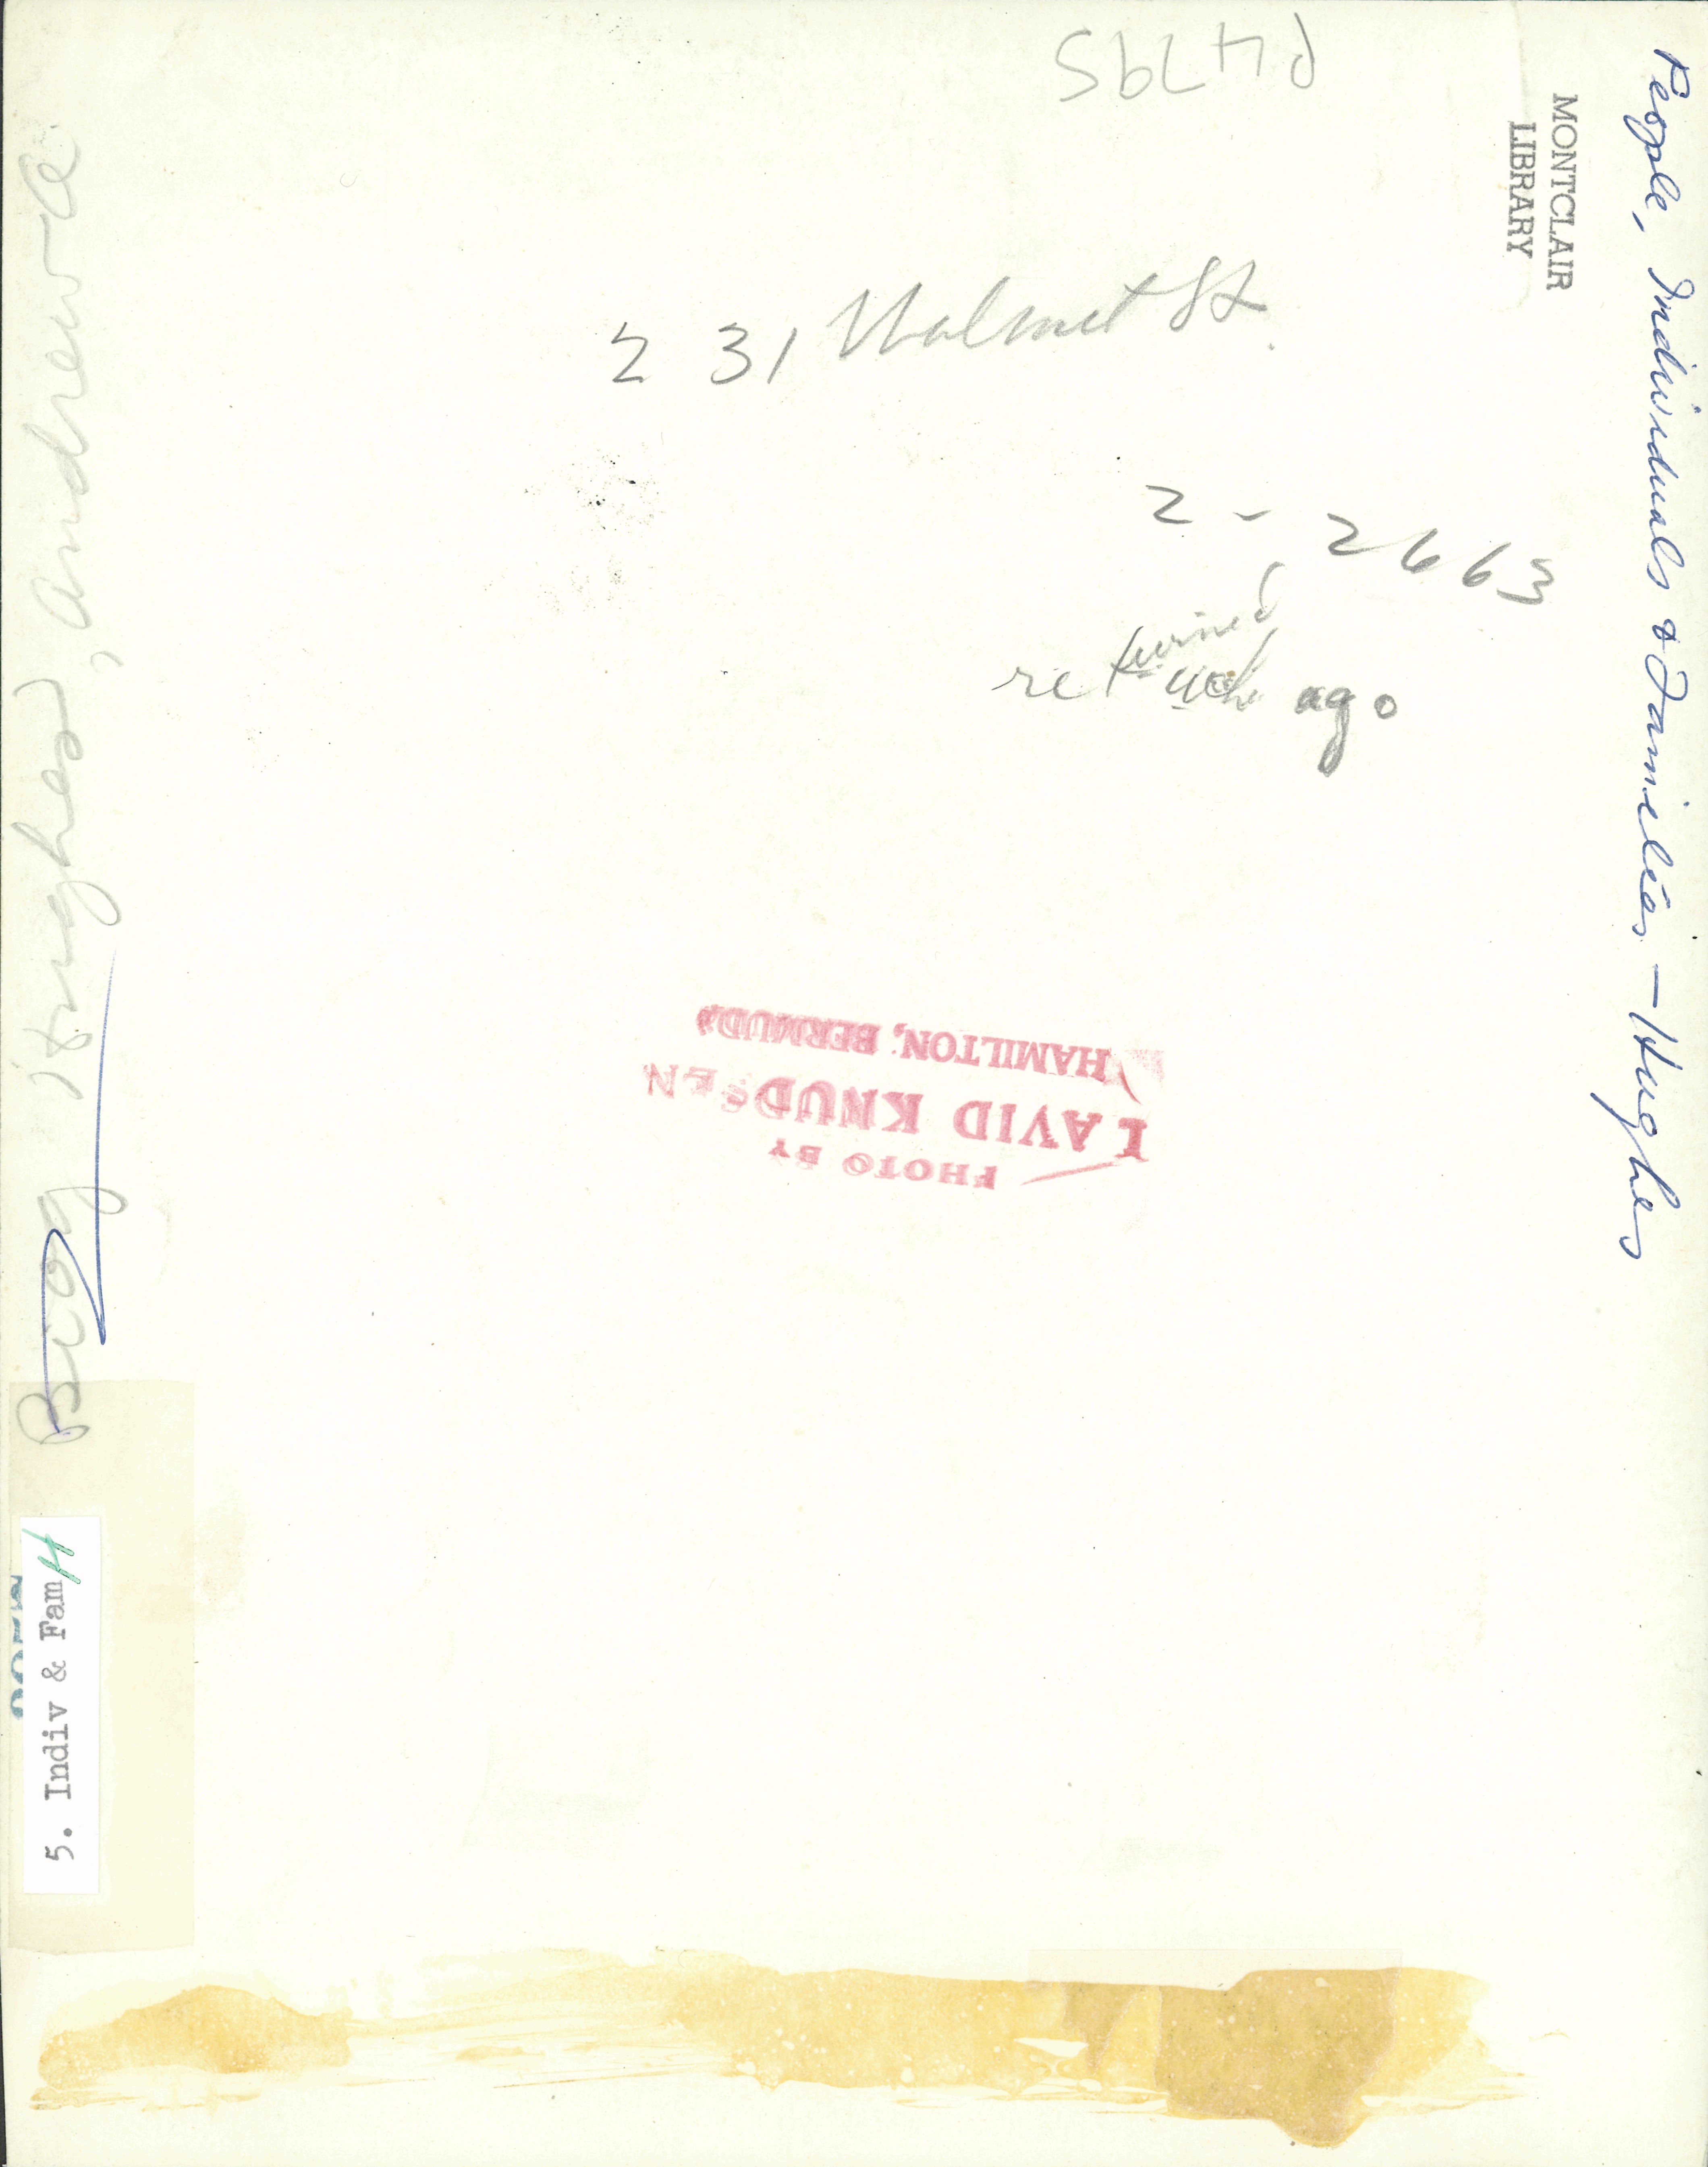 P4795
MONTCLAIR
LIBRARY
People, Individuals & Families - Hughes
231 Walnut St.
2-2663
returned
ago
PHOTO BY
DAVID KNUDSEN
HAMILTON, BERMUDA
Biog Hughes, Andrew
5. Indiv & Fam H